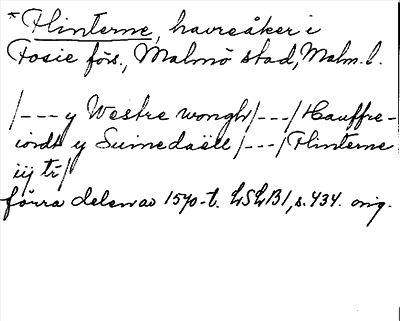 *Flinterne, havreåker i
Fosie förs., Malmö stad, Malm. l.
/--- y Westre wongh/---/Hauffre-
iordt y Suinedaell/---/Flinterne
iij tr/
förra delen av 1570-t. LSLB1, s. 434. orig.